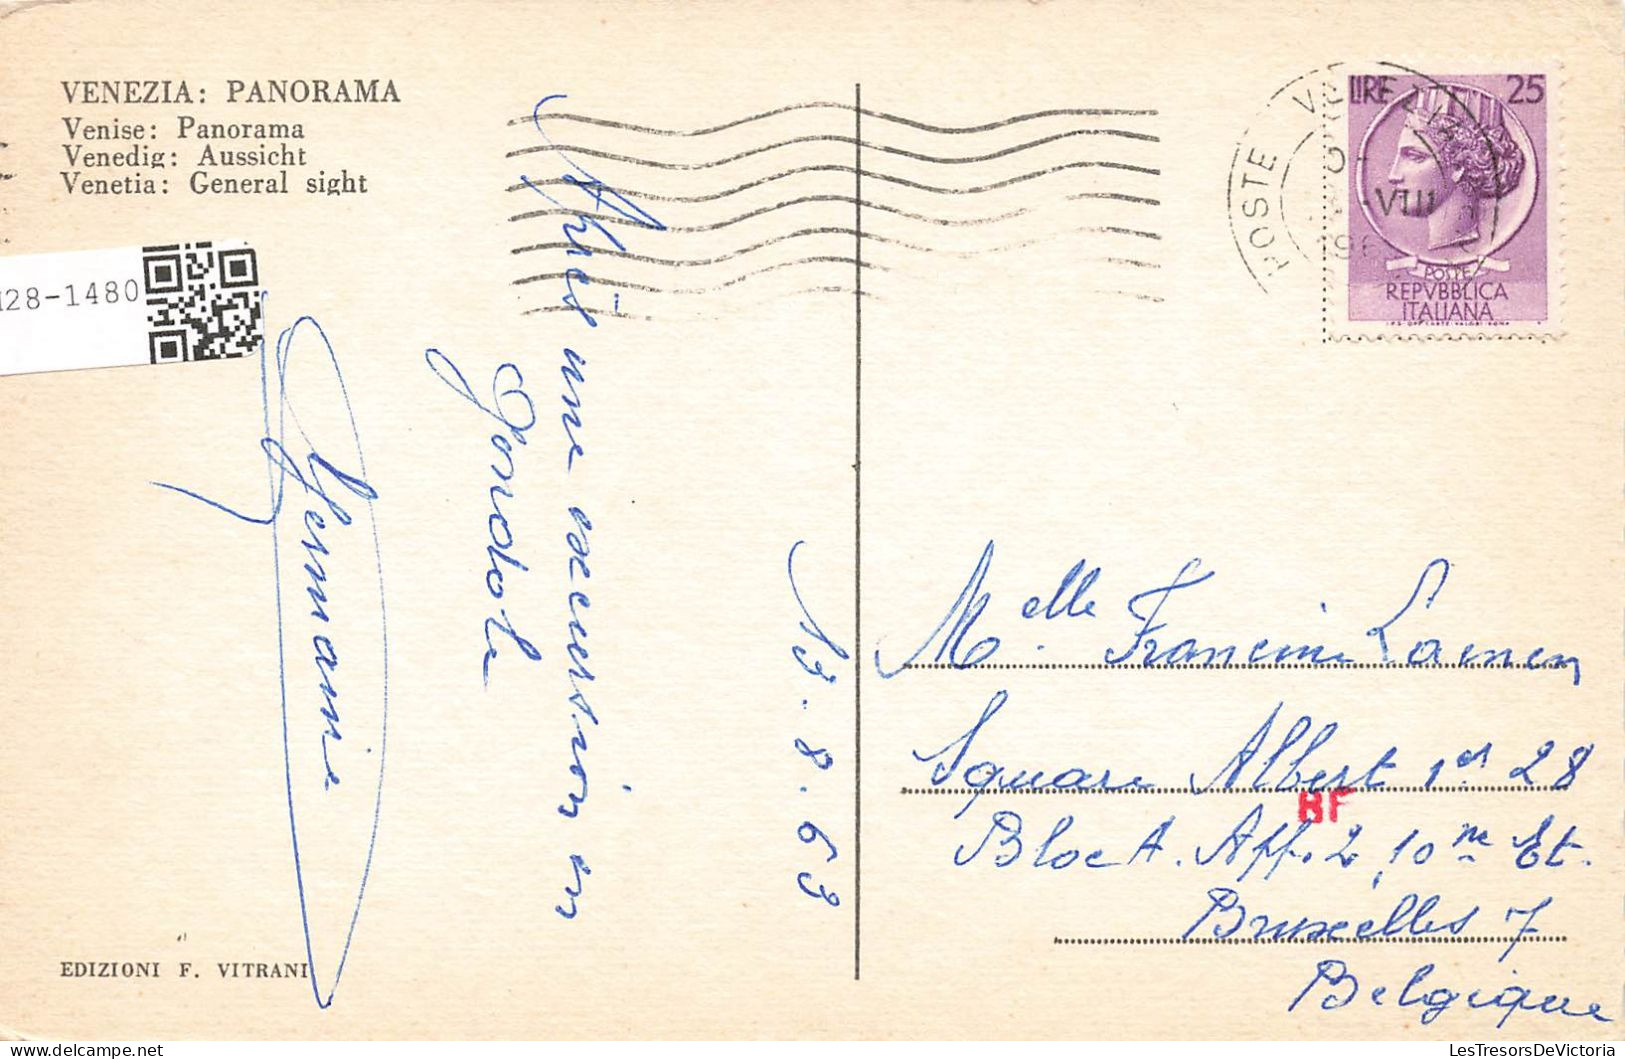 VENEZIA: PANORAMA
Venise: Panorama
Venedig: Aussicht
Venetia: General sight
28-1480
Après une excursion en
gondole
Germaine
13.8.63
POSTE VENEZIA
VIII
LIRE 25
POSTE
REPVBBLICA
ITALIANA
I.P.S. OFF. CARTE-VALORI-ROMA
Melle Francine Laenen
Square Albert 1er 28
BF
Bloc A. App. 2, 10me Et.
Bruxelles 7
Belgique
EDIZIONI F. VITRANI
LesTresorsDeVictoria